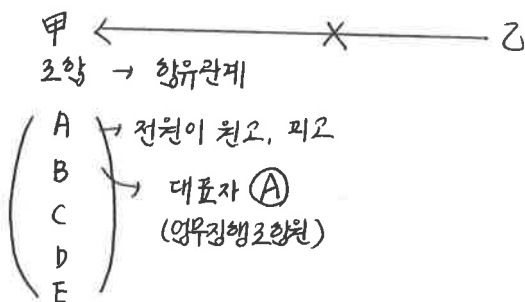 甲 ← X 乙
조합 → 합유관계
A → 전원이 원고, 피고
B → 대표자 Ⓐ
C (업무집행조합원)
D
E